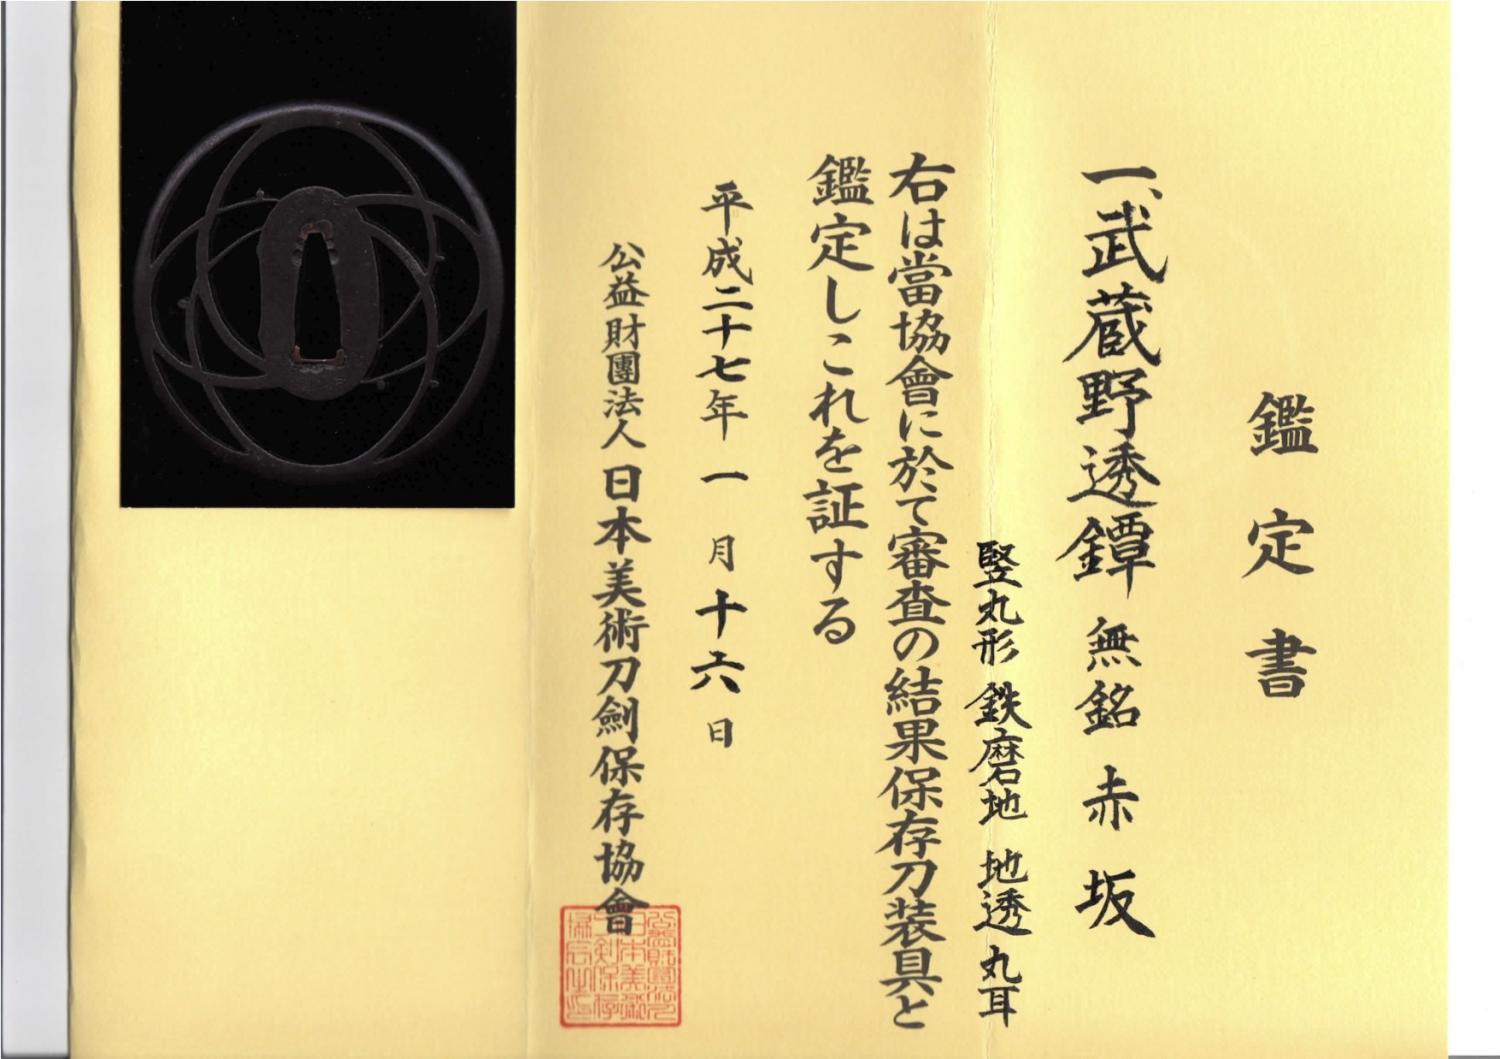 鑑定書
一、武蔵野透鐔 無銘 赤坂
竪丸形 鉄磨地 地透 丸耳
右は當協會に於て審査の結果保存刀装具と
鑑定しこれを証する
平成二十七年 一月十六日
公益財團法人 日本美術刀劍保存協會